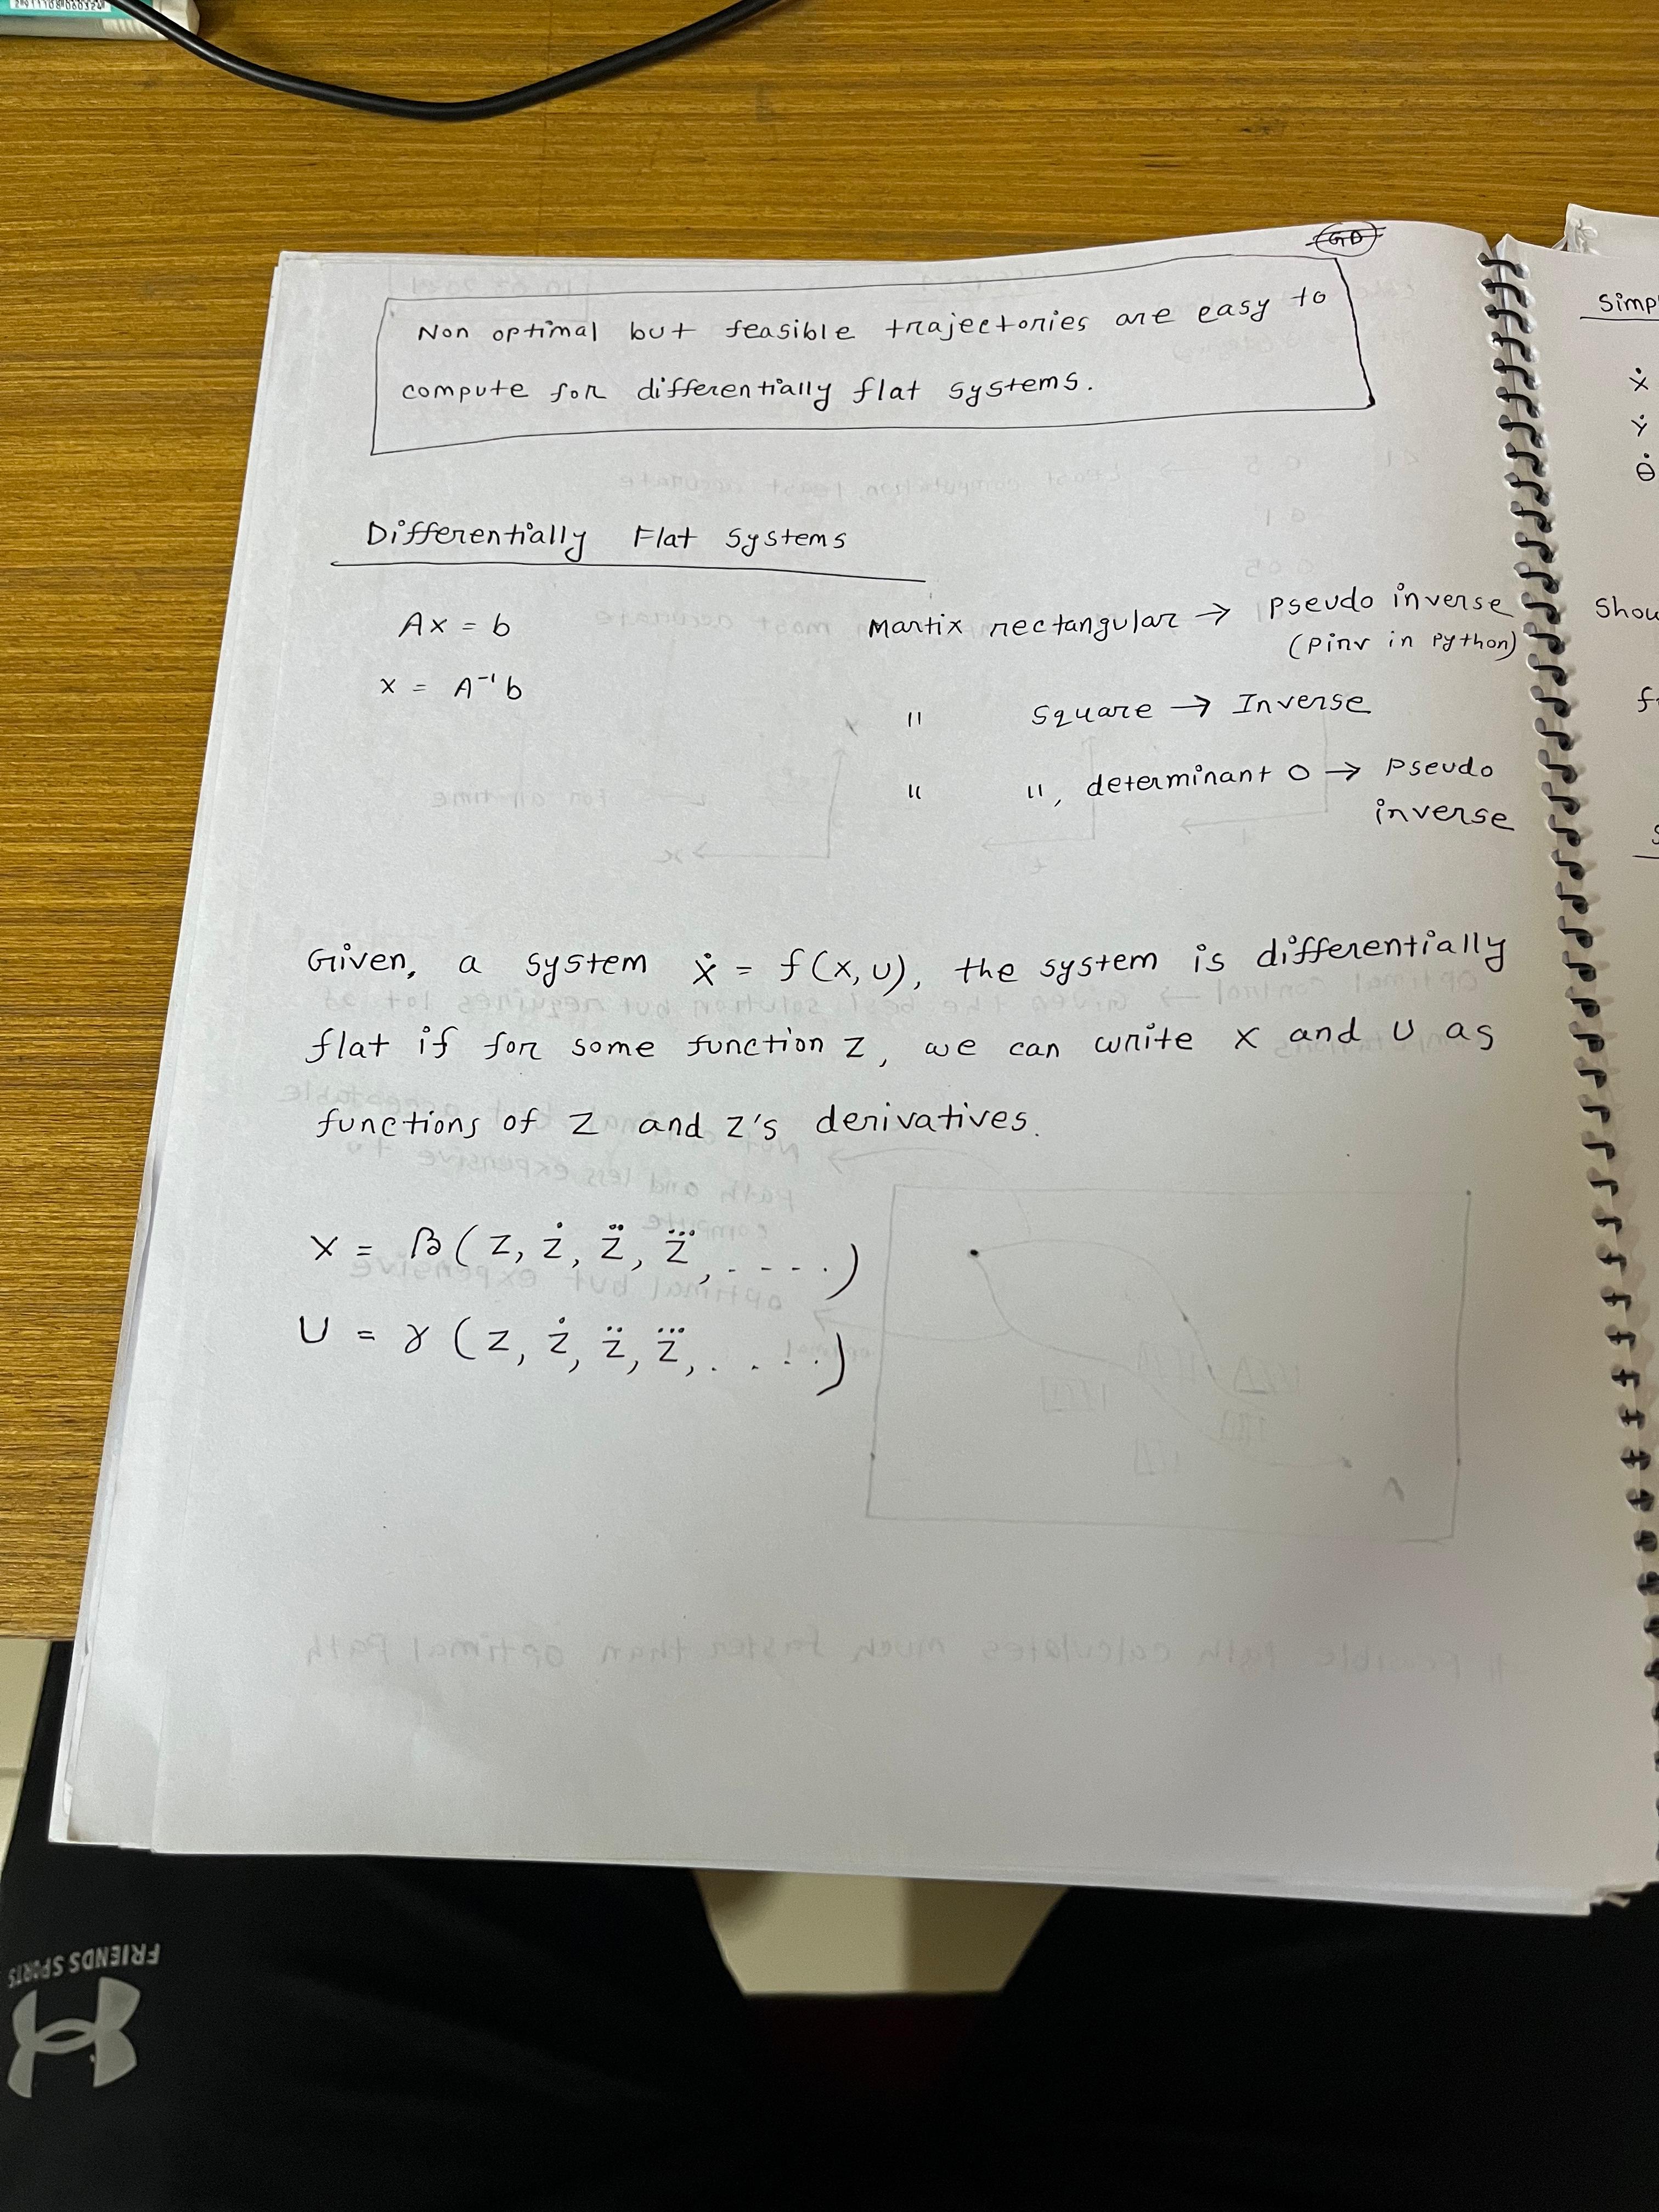 GD
Non optimal but feasible trajectories are easy to
compute for differentially flat systems.
Differentially Flat Systems
Ax = b
x = A⁻¹b
Martix rectangular → Pseudo inverse
(pinv in python)
" square → Inverse
" ", determinant 0 → Pseudo
inverse
Given, a system ẋ = f(x, u), the system is differentially
flat if for some function z, we can write x and u as
functions of z and z's derivatives.
x = β(z, ż, z̈, z⃛, ....)
u = γ(z, ż, z̈, z⃛, ....)
Simp
ẋ
ẏ
θ̇
Show
FRIENDS SPORTS